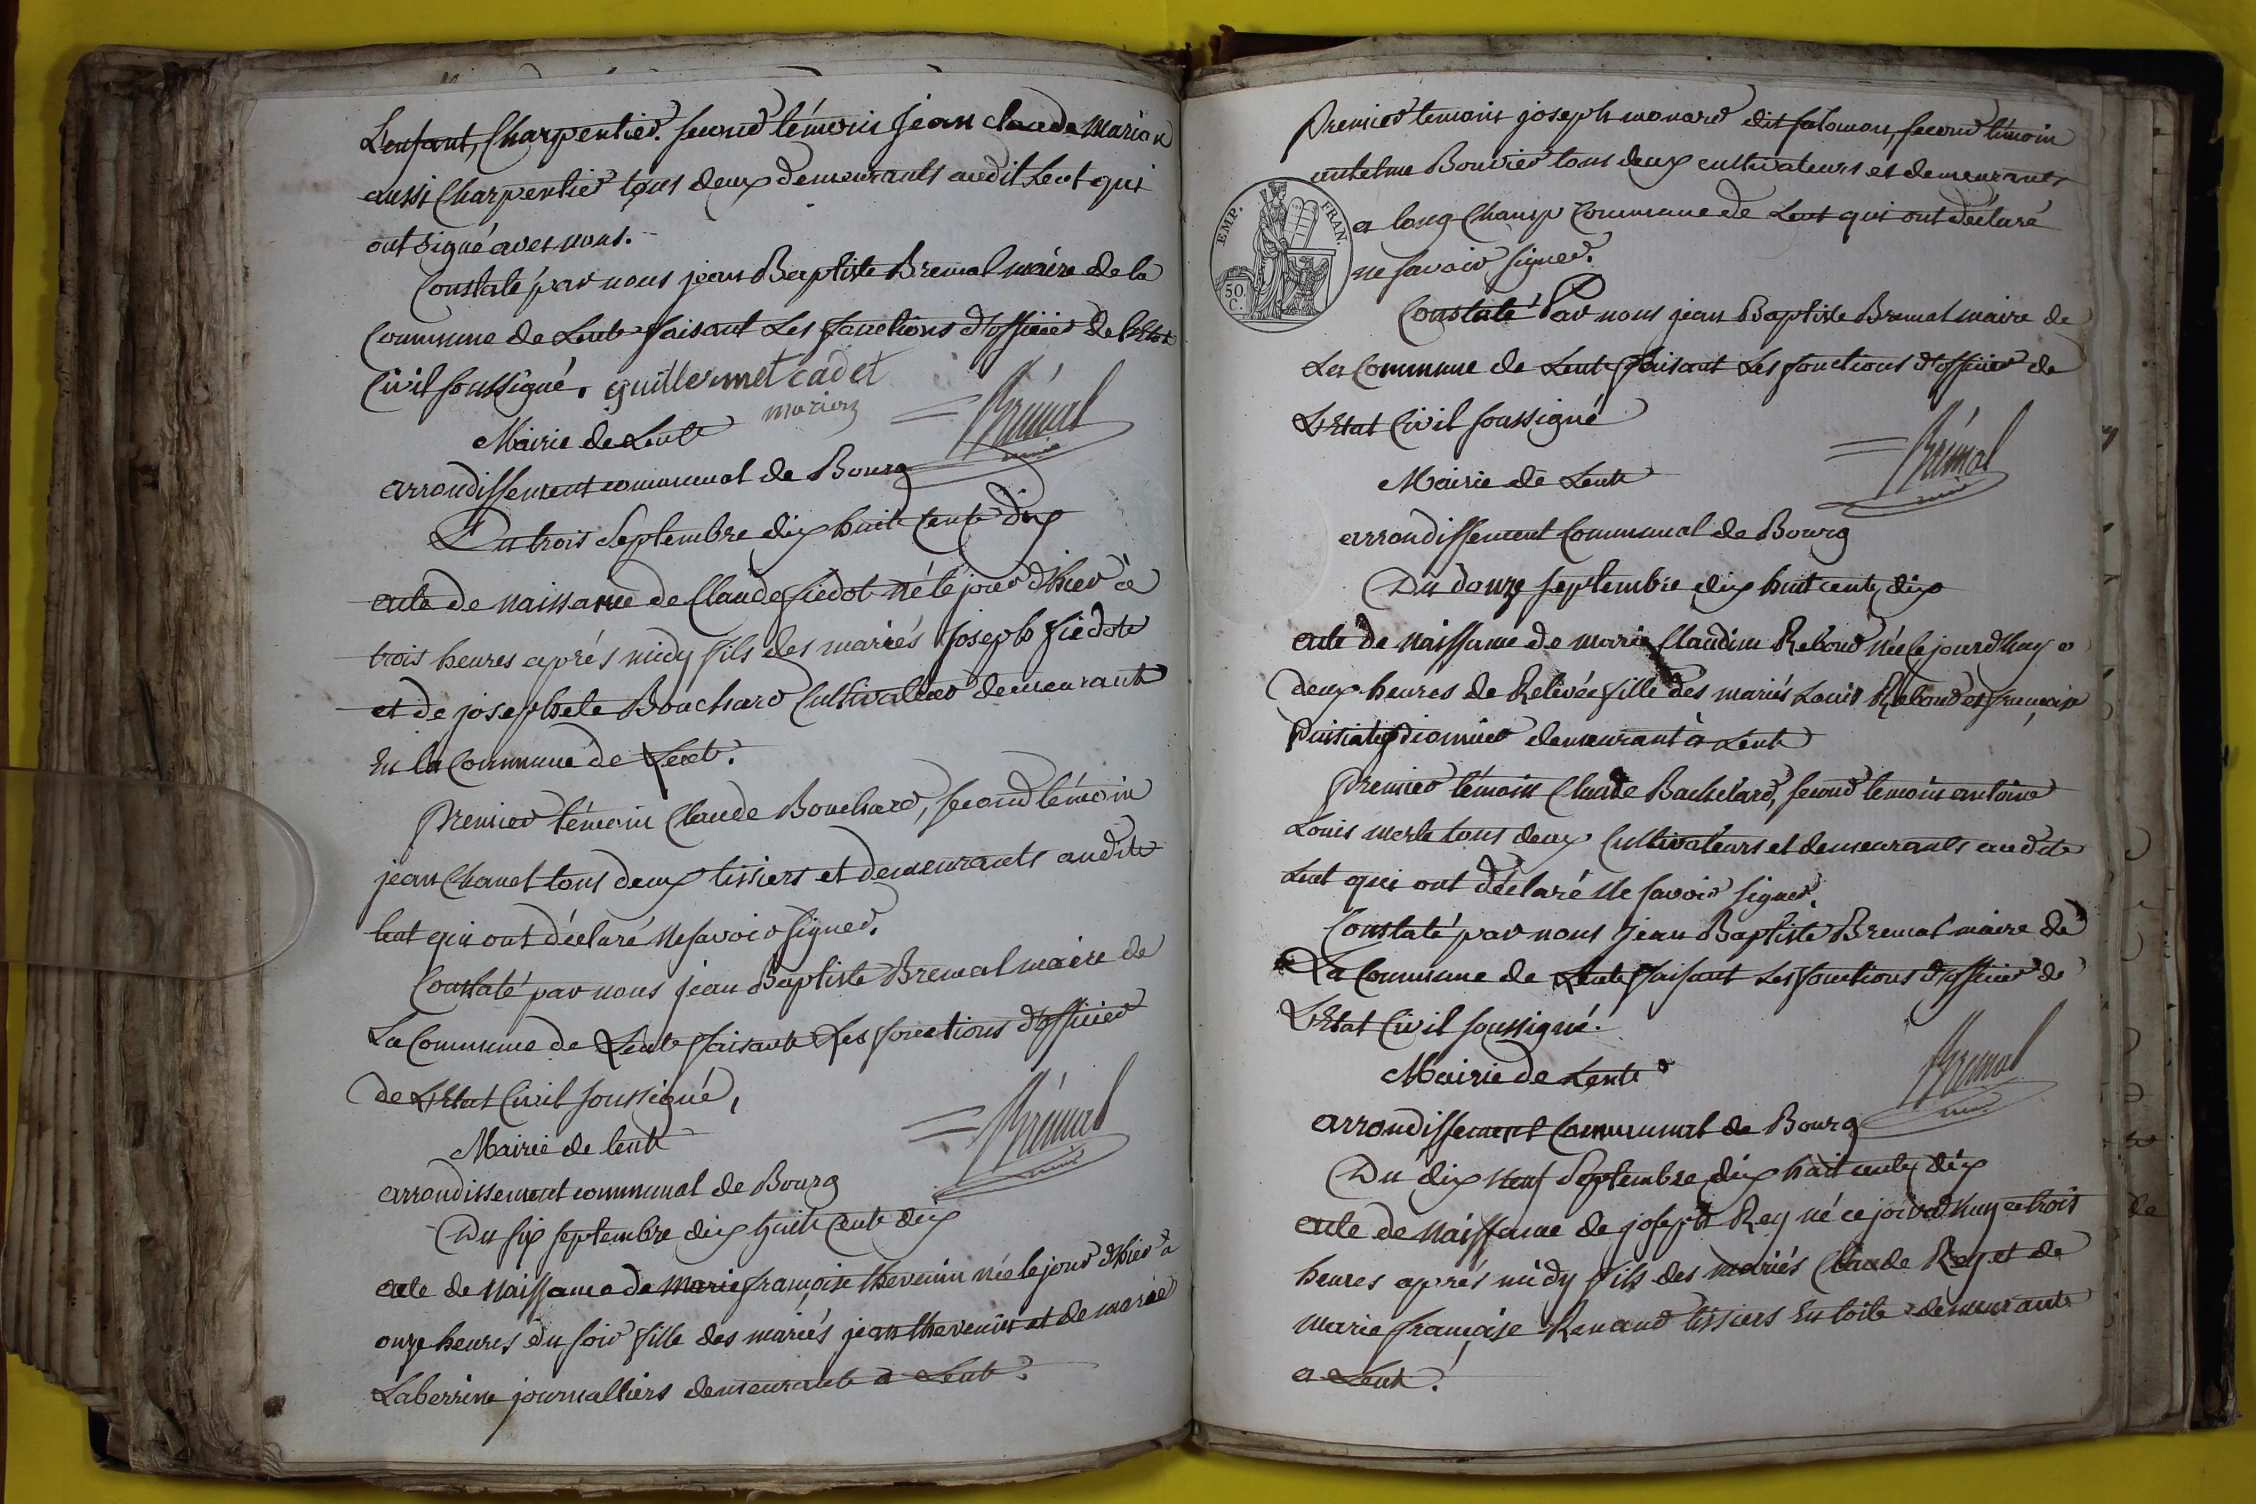 L'enfant, Charpentier. second témoin Jean claude Marion
aussi Charpentier tous deux demeurants audit Lent qui
ont signé avec nous.
Constaté par nous jean Baptiste Bremal maire de la
Commune de Lent faisant Les fonctions d'officier de l'Etat
Civil soussigné. guillermet cadet
marion
Brémal
Mairie de Lent
arrondissement communal de Bourg
Du trois Septembre dix huit cent dix
acte de naissance de Claude fiedot né le jour d'hier à
trois heures aprés midy fils des mariés Joseph fiedot
et de josephete Bouchard Cultivateur demeurant
En la Commune de Lent.
premier témoin Claude Bouchard, second témoin
jean Chanel tous deux tissiers et demeurants audit
lent qui ont déclaré ne savoir signer.
Constaté par nous jean Baptiste Bremal maire de
La Commune de Lent faisant Les fonctions d'officier
de L'Etat Civil soussigné,
Brémal
Mairie de lent
arrondissement communal de Bourg
Du six septembre dix huit cent dix
acte de naissance de marie françoise thevenin née le jour d'hier à
onze heures du soir fille des mariés jean thevenin et de marie
Laberrine journalliers demeurant a Lent.
premier temoin joseph monard dit salomon, second témoin
antelme Bouvier tous deux cultivateurs et demeurants
a long Champ Commune de Lent qui ont déclaré
ne savoir signer.
EMP. FRAN.
50 C.
Constaté Par nous jean Baptiste Bremal maire de
La Commune de Lent faisant Les fonctions d'officier de
L'Etat Civil soussigné
Brémal
Mairie de Lent
arrondissement Communal de Bourg
Du douze septembre dix huit cent dix
acte de naissance de marie Claudine Reboud née le jourd'huy a
deux heures de Relevée fille des mariés Louis Reboud et françoise
demeurant à Lent
premier témoin Claude Bachelard, second temoin antoine
Louis merle tous deux Cultivateurs et demeurants audit
Lent qui ont déclaré Ne savoir signer.
Constaté par nous Jean Baptiste Bremal maire de
La Commune de Lent faisant Les fonctions d'officier de
L'Etat Civil soussigné.
Bremal
Mairie de Lent
arrondissement Communal de Bourg
Du dix neuf Septembre dix huit cent dix
acte de naissance de joseph Rey né ce jourd'huy a trois
heures aprés midy fils des mariés Claude Rey et de
marie françoise Renaud tissiers En toile demeurant
a Lent.